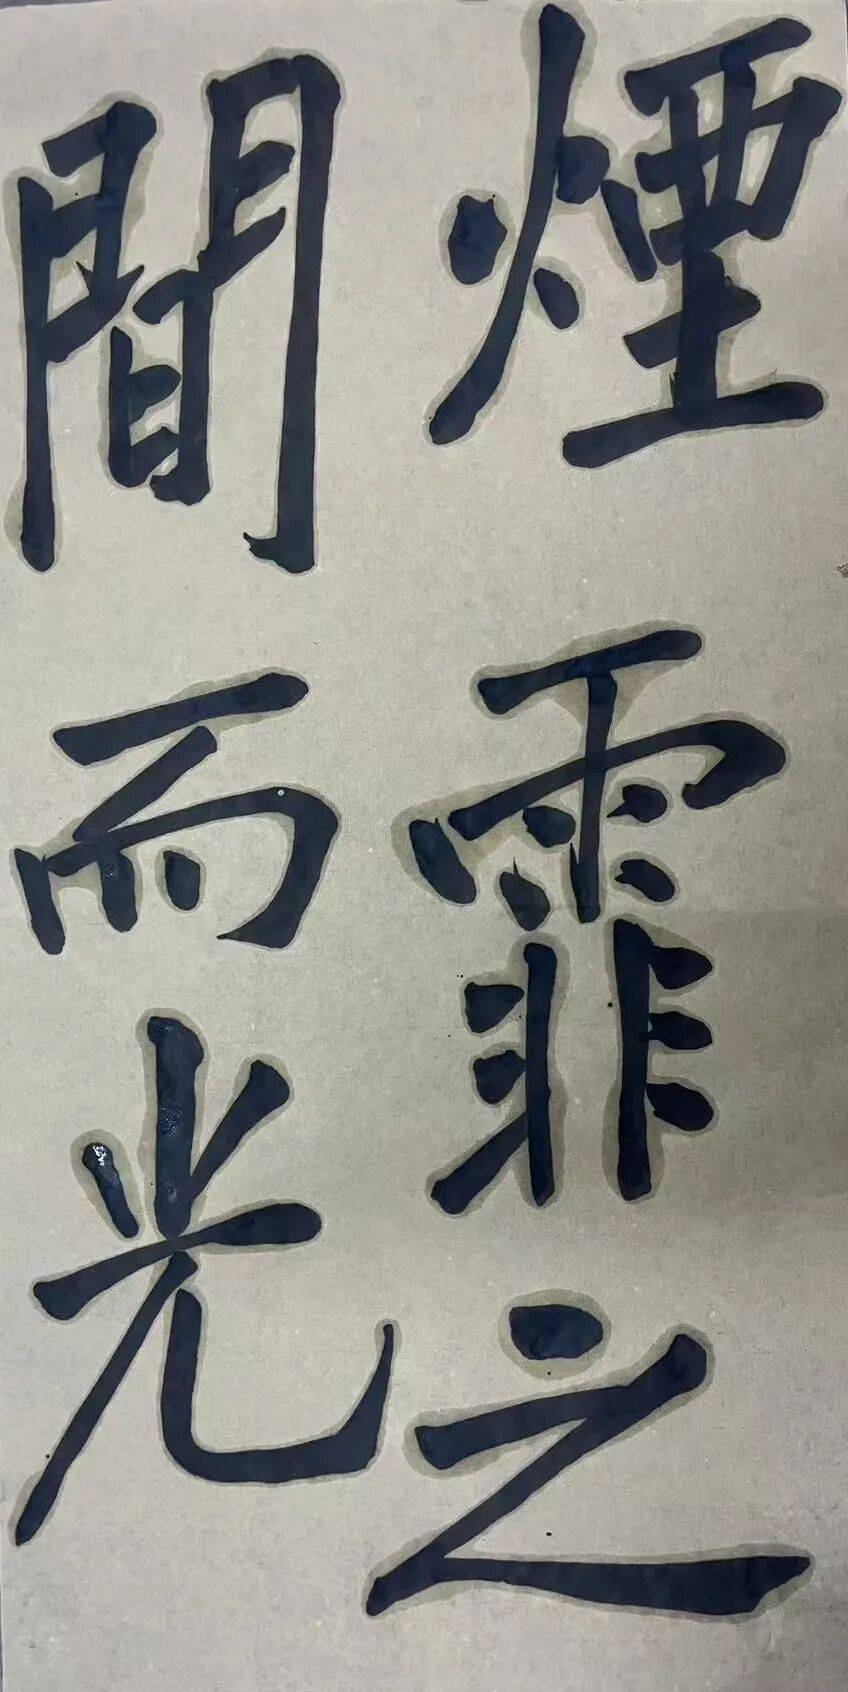 煙霏之
間而光